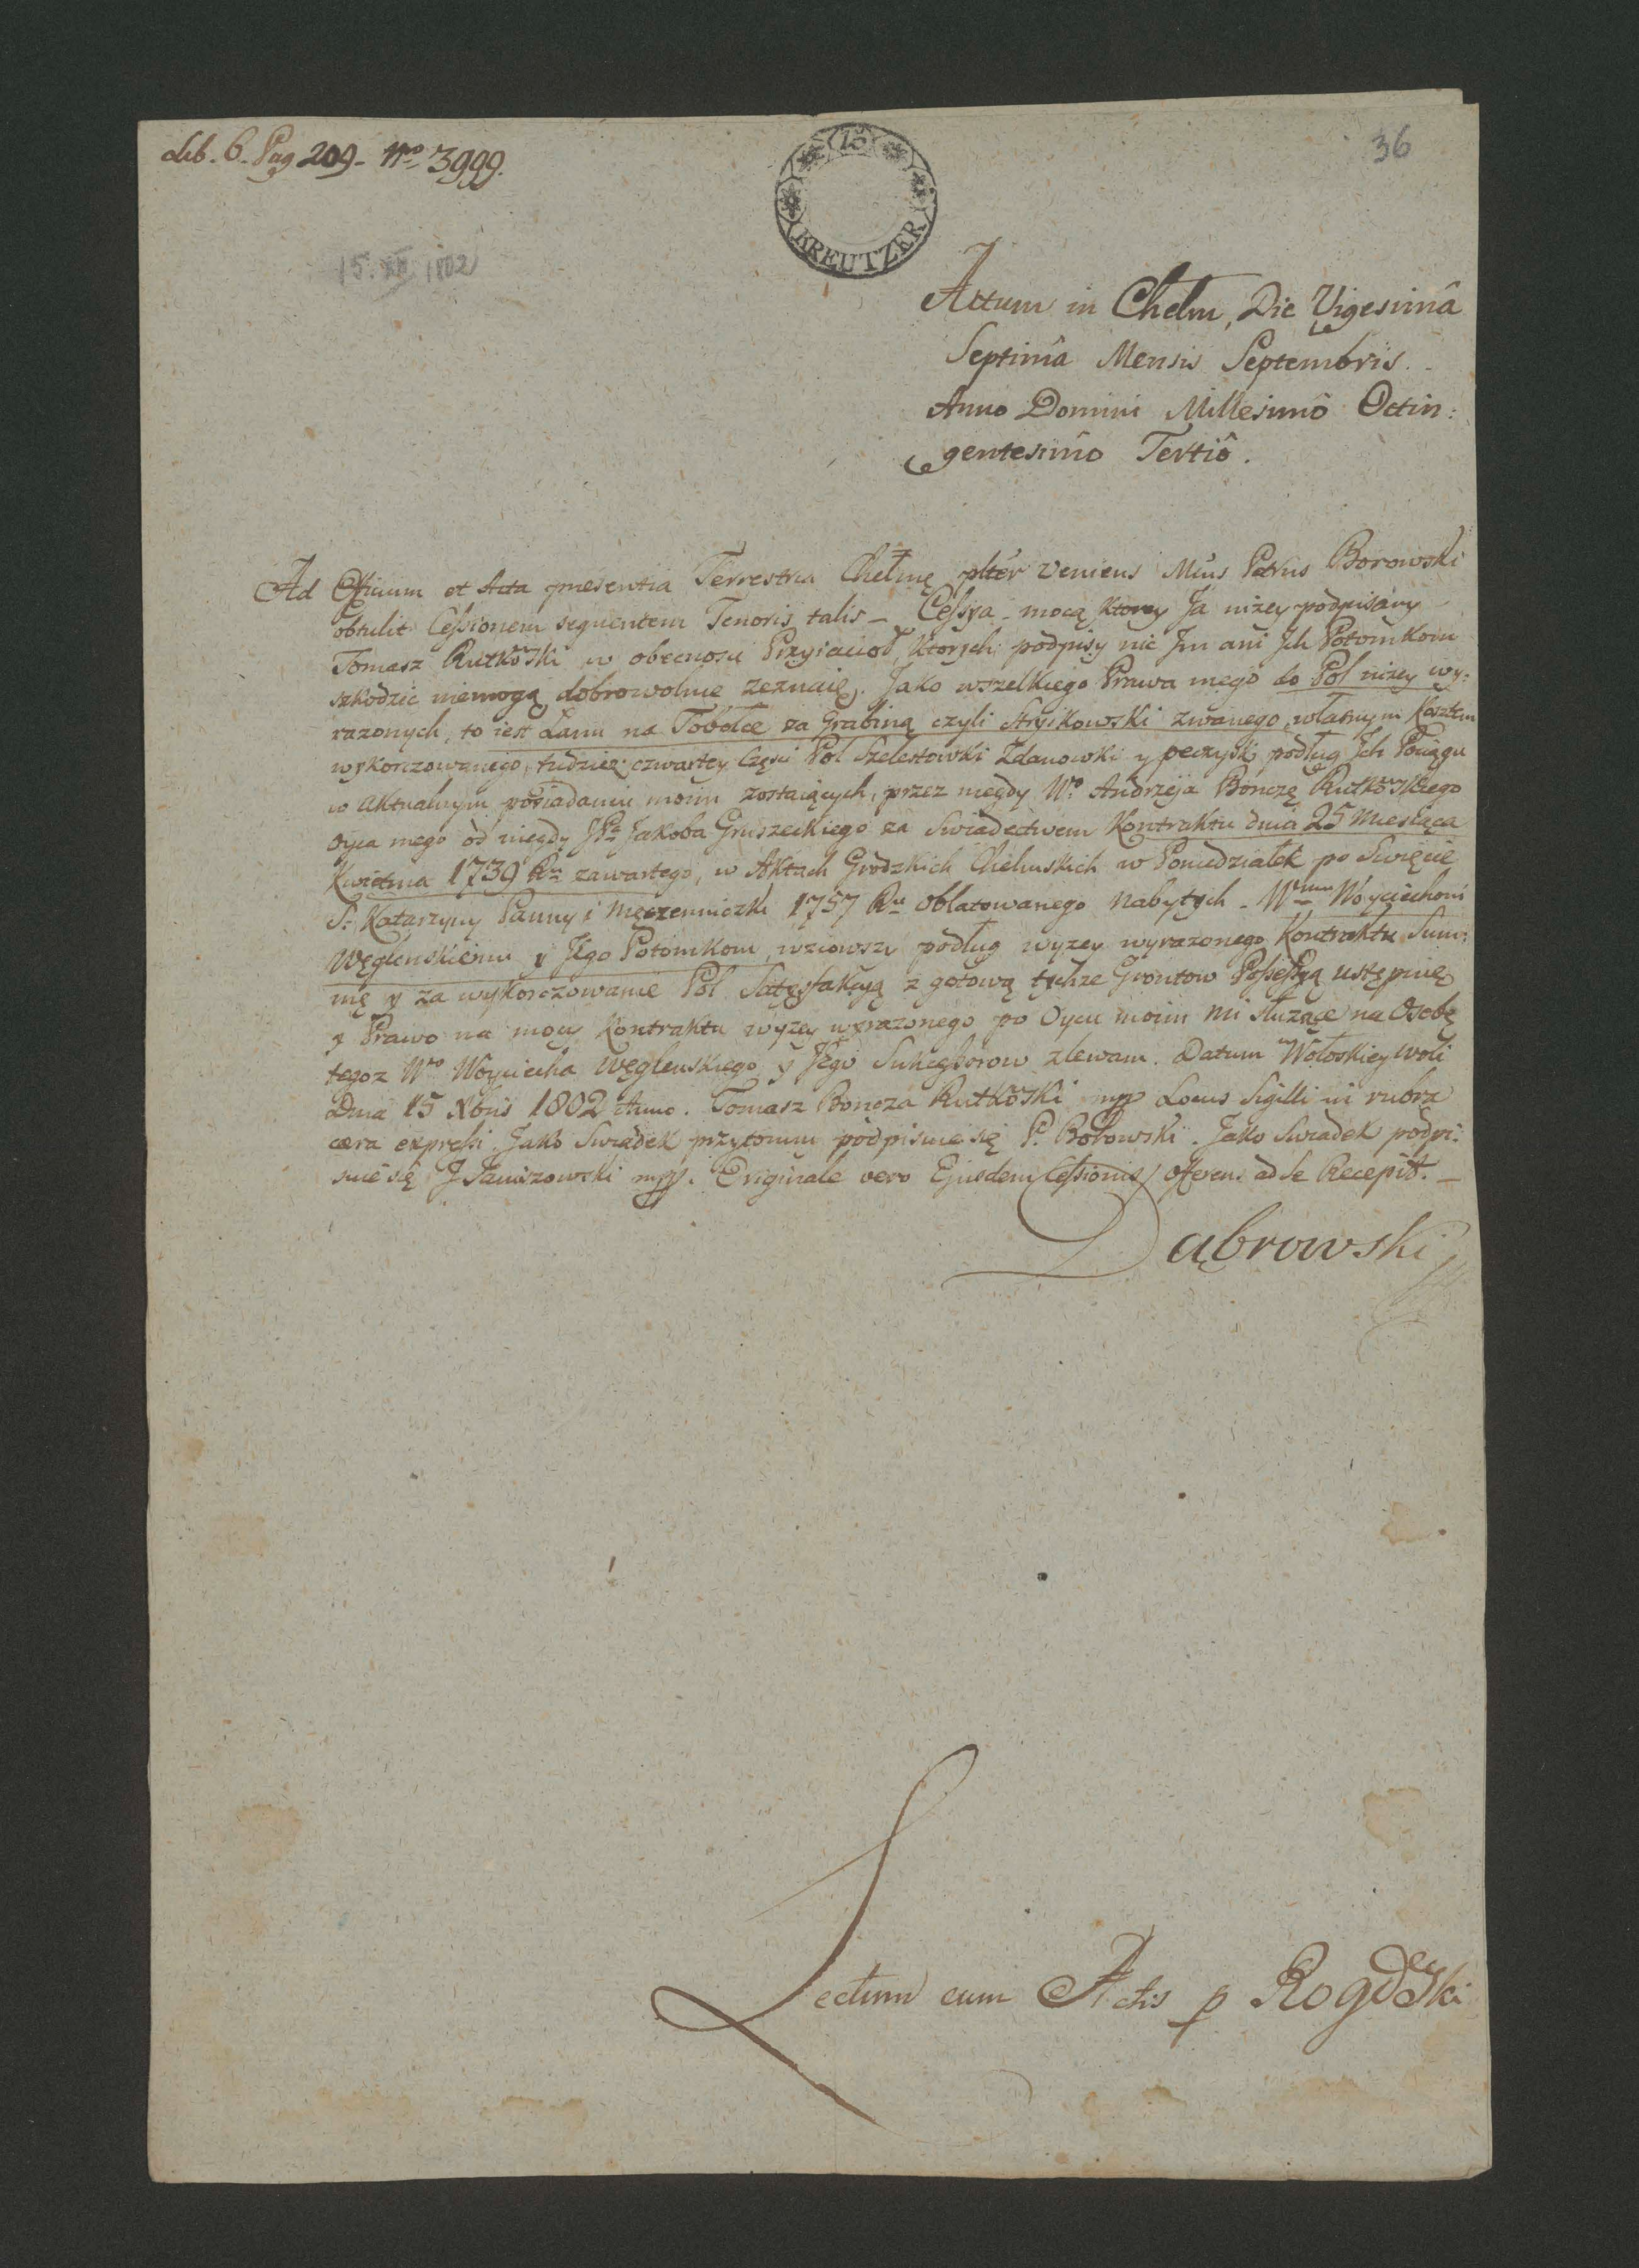 Lib. 6. Pag 209. Nro 3999.
36
15
KREUTZER
15. XII 1802
Actum in Chelm, Die Vigesimâ
Septimâ Mensis Septembris.
Anno Domini Millesimô Octin:
gentesimô Tertiô.
Ad Officium et Acta presentia Terrestria Chelmę plter Veniens Mus Petrus Borowski
obtulit Cessionem sequentem Tenoris talis _ Cessya _ mocą ktorey Ja nizey podpisany
Tomasz Rutkowski w obecnosci Przyiacioł, ktorych podpisy nic Jm ani Jch Potomkom
szkodzic niemogą dobrowolnie zeznaię. Jako wszelkiego Prawa mego do Pol nizey wy:
razonych, to iest Łanu na Tobołce za Grabiną czyli Stryikowski zwanego, własnym Kosztem
wykorczowanego, tudziez czwartey Częsci Pol Szelestowki Zdanowski y peczyski podług Jch Pociągu
w aktualnym posiadaniu moim zostaiących, przez niegdy Wo Andrzeja Bonczę Rutkowskiego
Oyca mego od niegdy JPa Jakoba Gruszeckiego za Swiadectwem Kontraktu dnia 25 Miesiąca
Kwietnia 1739 Ru zawartego, w Aktach Grodzkich Chelmskich w Poniedziałek po Swięcie
S. Katarzyny Panny i Męczenniczki 1757 Ru oblatowanego nabytych _ Wmu Woyciechowi
Węglenskiemu y Jego Potomkom, wziowszy podług wyzey wyrazonego Kontraktu Sum:
mę y za wykorczowanie Pol Satysfakcyą z gotową tychze Grontow Possessyą ustępuię
y Prawo na mocy Kontraktu wyzey wyrazonego po Oycu moim mi słuzące na Osobę
tegoz Wo Woyciecha Węglenskiego y Jego Sukcessorow zlewam. Datum w Wołoskiey woli
Dnia 15 Xbris 1802 Anno. Tomasz Boncza Rutkowski mpp Locus Sigilli in rubra
cera expressi. Jako Swiadek przytomny podpisuie się P. Borowski. Jako Swiadek podpi:
suie się J Janiszowski mpp. Originale vero Ejusdem Cessionis offerens ad se Recepit. _
Dąbrowski
Lectum cum Actis p Rogowski